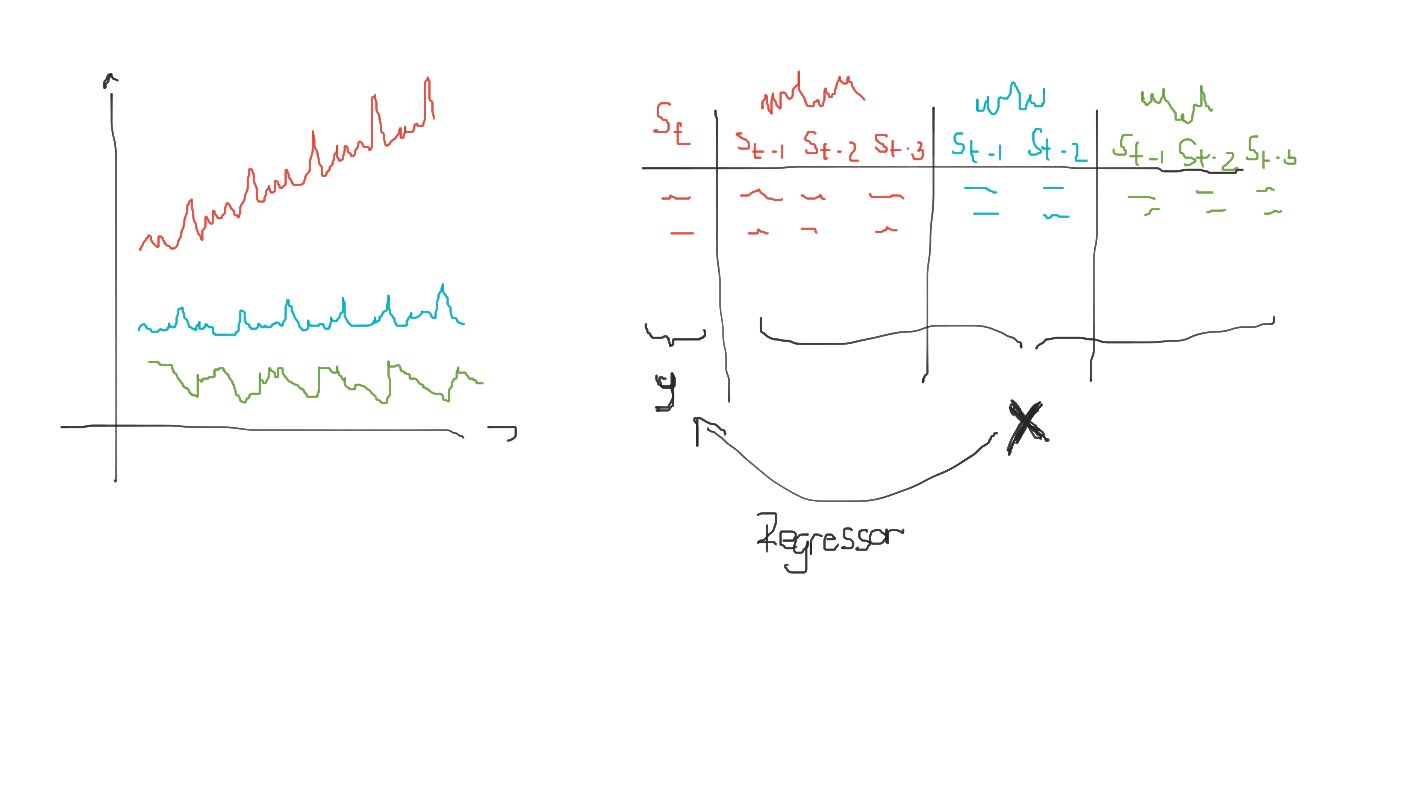 St
St-1 St-2 St-3
St-1 St-2
St-1 St-2 St-3
y
X
Regressor